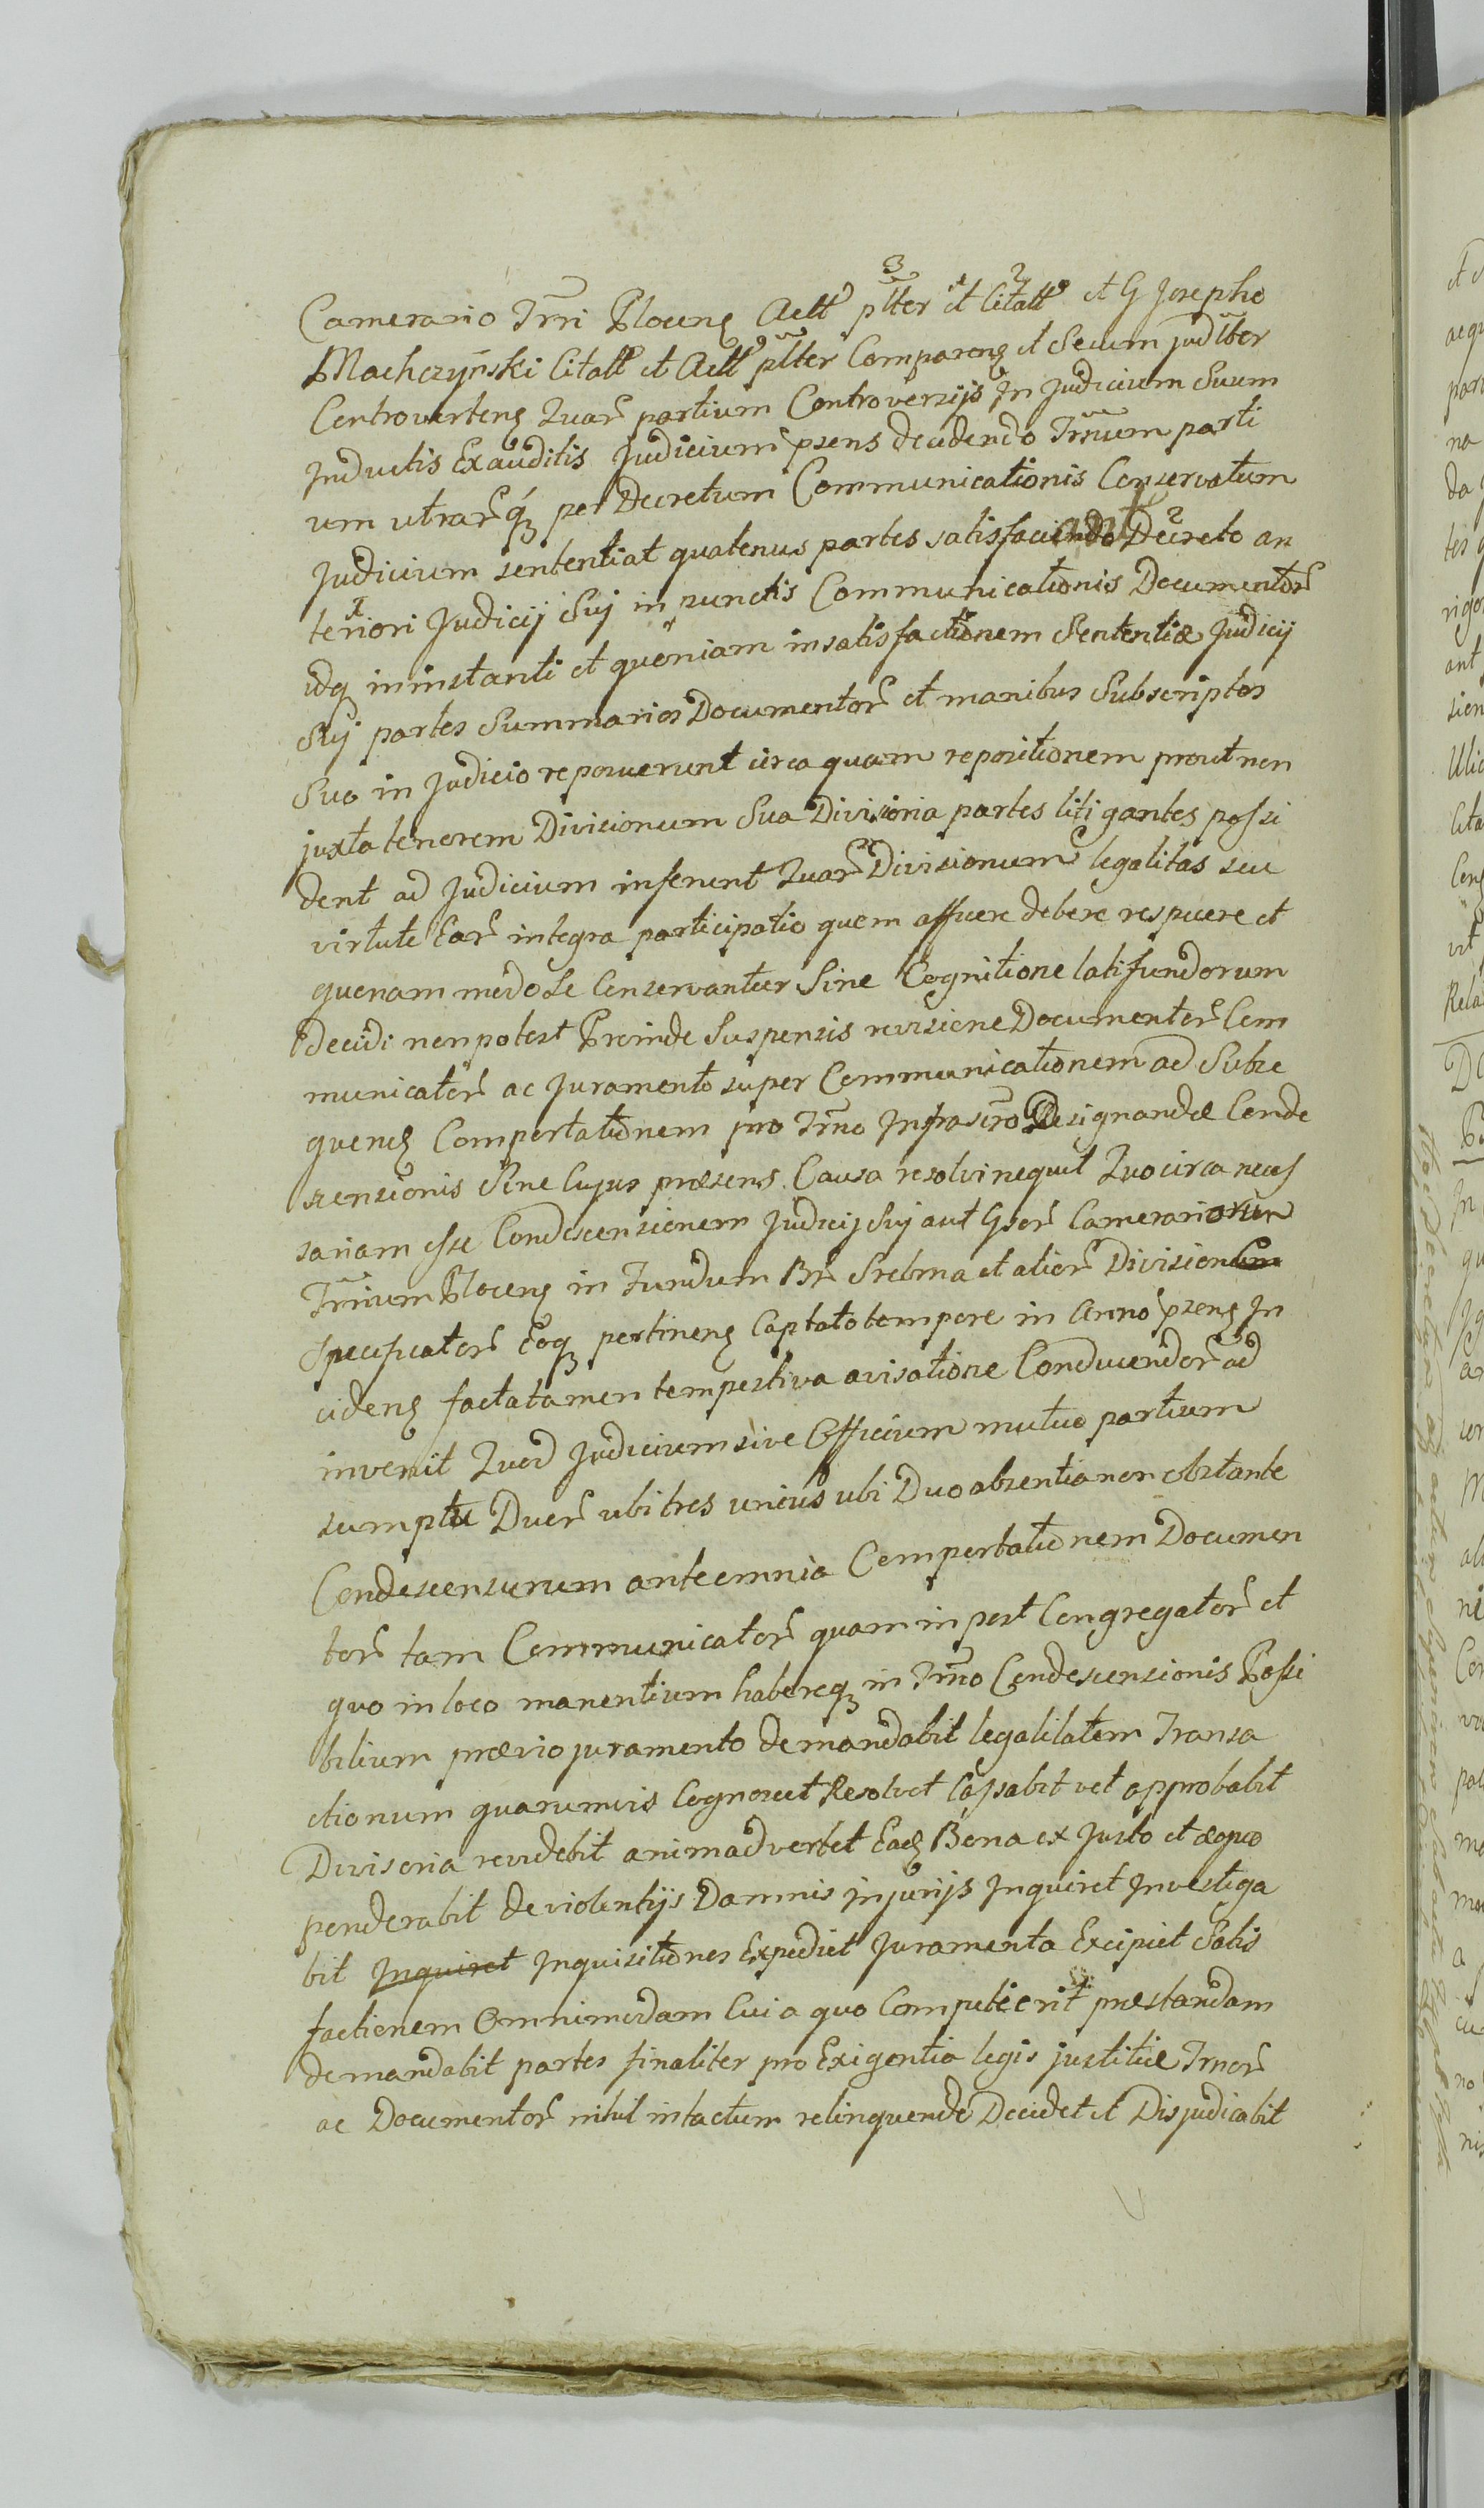 Camerario Trri Plocens Actt pltter et Citatt et G Josepho
Machczyński Citatt et Actt pltter Comparens et Secum judltter
Controvertens Quar partium Controversijs In Judicium Suum
Inductis Exauditis Judicium psens decidendo Trnum parti
um utrarq per Decretum Communicationis Conservatum
Judicium sententiat quatenus partes satisfaciendo Decreto an
teriori Judicij Suj in punctis Communicationis Documentor
idq in instanti et quoniam in satisfactionem Sententiæ Judicij
Suj partes Summarios Documentor et manibus Subscriptos
Sua in Judicio reposuerunt circa quam repositionem prout non
juxta tenorem Divisionum Sua Divisoria partes litigantes possi
dent ad Judicium inferunt Quar Divisionum legalitas seu
virtute Ear integra participatio quem affuere debere respuere et
quonam modo Se Conservantur Sine Cognitione latifundorum
decidi non potest Proinde Suspensis revisione Documentor Com
municator ac Juramento super Communicationem ad Subse
quens Comportationem pro Trno Infrascro Designandæ Conde
scensionis Sine Cujus præsens Causa resolvi nequit Quocirca neces
sariam esse Condescensionem Judicij Suj aut Gsor Camerariorum
Trrium Plocens in Fundum Br Srebrna et alior Divisionum
Specificator Eoq pertinens Captato tempore in Anno psens In
cidens facta tamen tempestiva avisatione Conducendor ad
invenit Quod Judicium sive Officium mutuo partium
sumptu Duor ubi tres unius ubi Duo absentia non obstante
Condescensurum ante omnia Comportationem Documen
tor tam Communicator quam in post Congregator et
quo in loco manentium habereq in Trno Condescensionis Possi
bilium prævio juramento demandabit legalitatem Transa
ctionum quarumvis Cognoscet Resolvet Cassabit vel approbabit
Divisoria revidebit animadvertet Eaq Bona ex Justo et æquo
ponderabit de violentijs Damnis injurijs Inquiret Investiga
bit Inquiret Inquisitiones Expediet Juramenta Excipiet Satis
factionem Omnimodam Cui a quo Competierit præstandam
demandabit partes finaliter pro Exigentia legis justitiæ Trnor
ac Documentor nihil intactum relinquendo Decidet et Disjudicabit